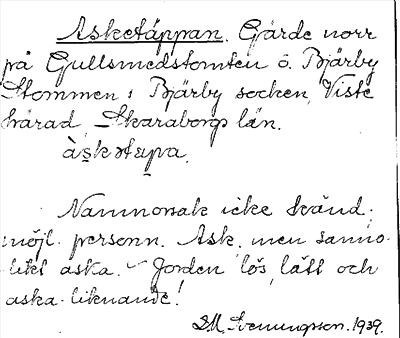 Asketäppan. Gärde norr
på Gullsmedstomten ö. Bjärby
Stommen i Bjärby socken, Viste
härad, Skaraborgs län.
àskətẹpa.
Namnorsak icke känd;
möjl. personn. Ask, men sanno-
likt aska. – Jorden lös, lätt och
aska-liknande!
D.M. Svenungsson. 1939.